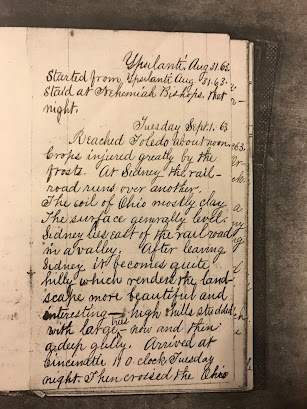 Ypsilanti. Aug 31. 63
Started from, Ypsilanti Aug 31. 63.
Staid at Nehemiah Bishops. that
night.
Tuesday Sept. 1. 63
Reached Toledo about noon
Crops injured greatly by the
frosts. At Sidney the rail-
road runs over another.
The soil of Ohio mostly clay
The surface generally level
Sidney lies east of the railroad
in a valley. After leaving
Sidney it becomes quite
hilly which renders the land-
scape more beautiful and
interesting— high hills studded
with large — now and then
a deep gully. Arrived at
Cincinatti 11 O clock Tuesday
night. Then crossed the Ohio